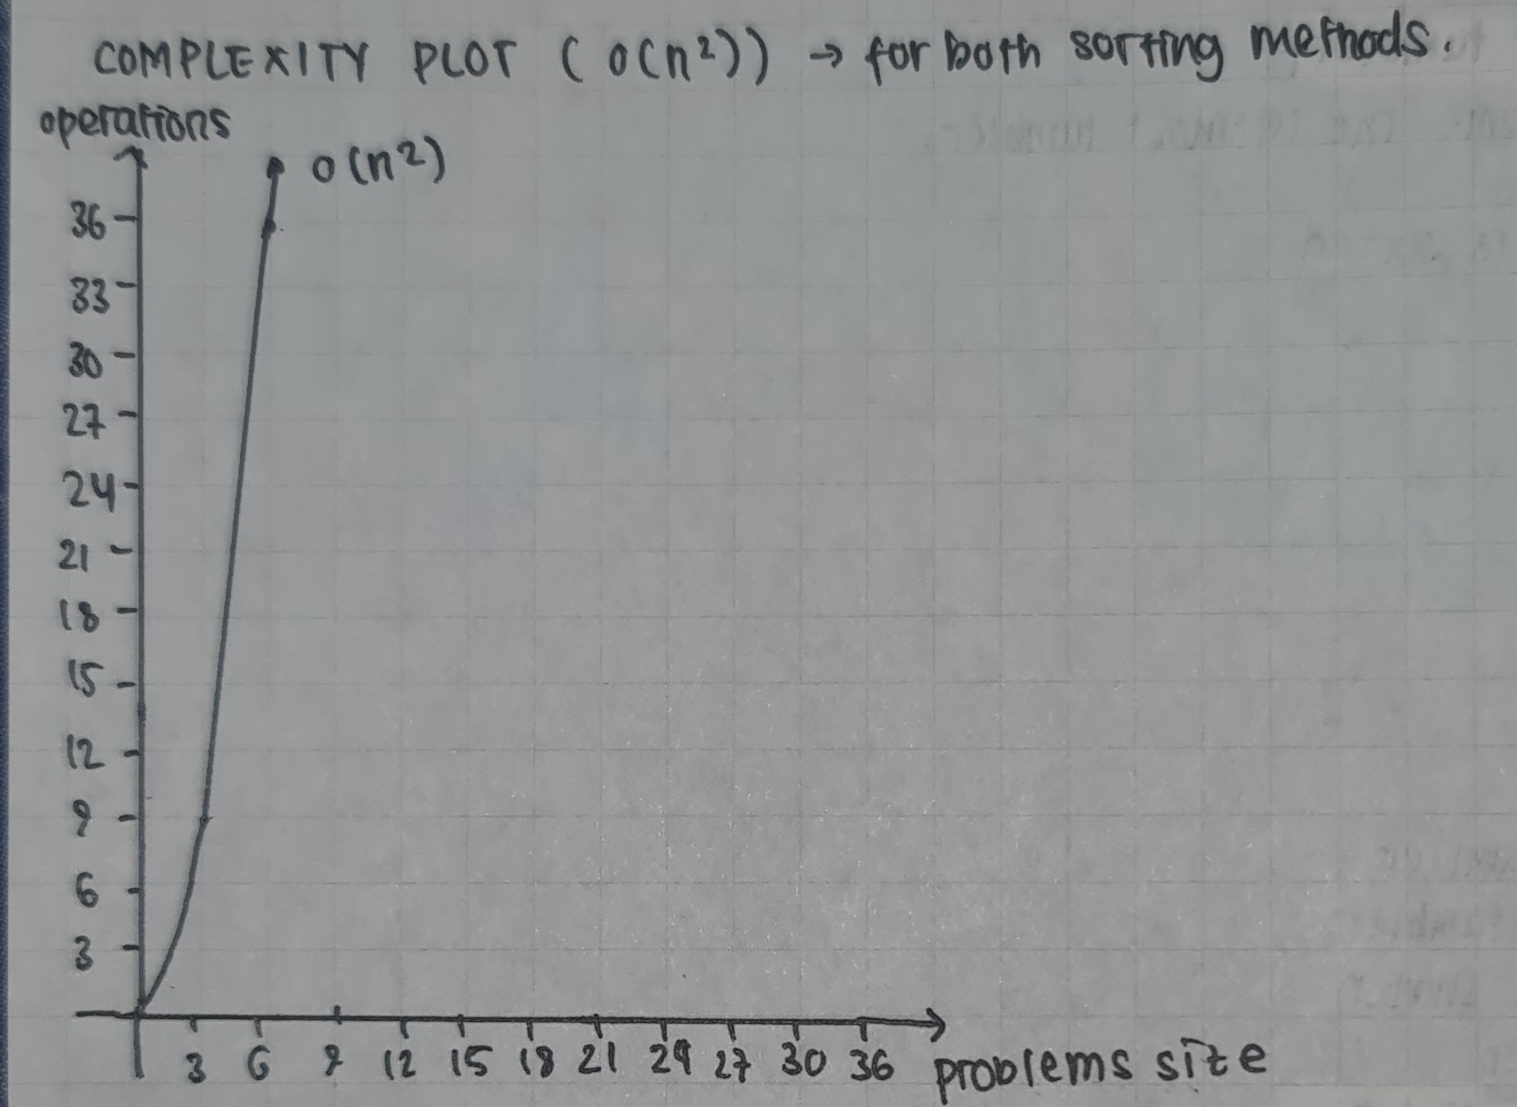 COMPLEXITY PLOT (O(n²)) → for both sorting methods.
operations
O(n²)
36
33
30
27
24
21
18
15
12
9
6
3
3 6 9 12 15 18 21 24 27 30 36 problems size